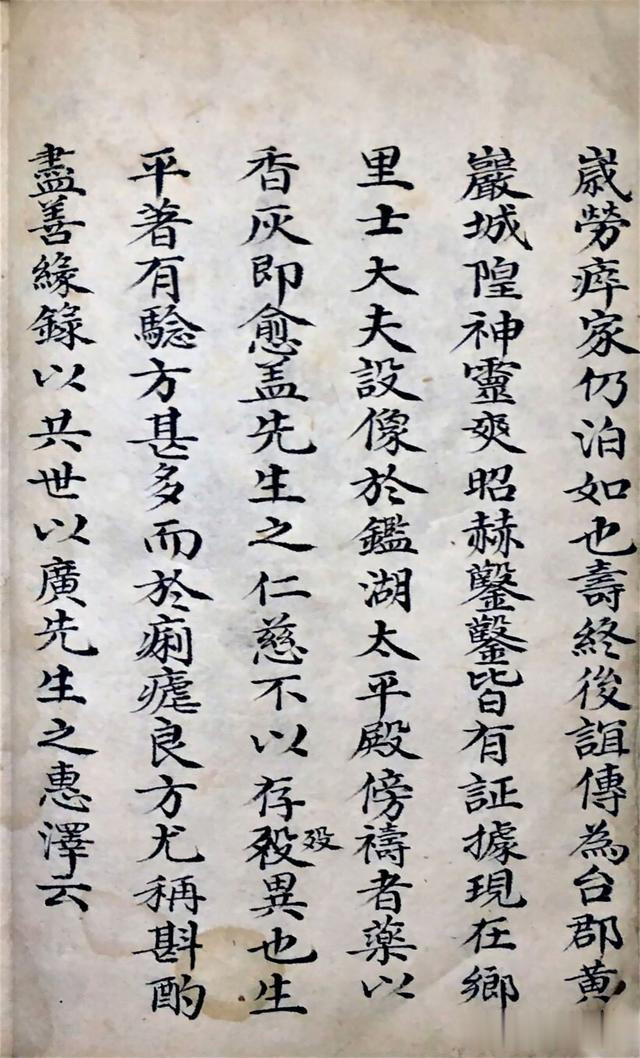 歳勞瘁家仍泊如也壽終後誼傳為台郡黃
巖城隍神靈爽昭赫鑿鑿皆有証據現在鄉
里士大夫設像於鑑湖太平殿傍禱者藥以
香灰即愈盖先生之仁慈不以存歿異也生
歿
平著有騐方甚多而於痢瘧良方尤稱斟酌
盡善緣錄以共世以廣先生之惠澤云